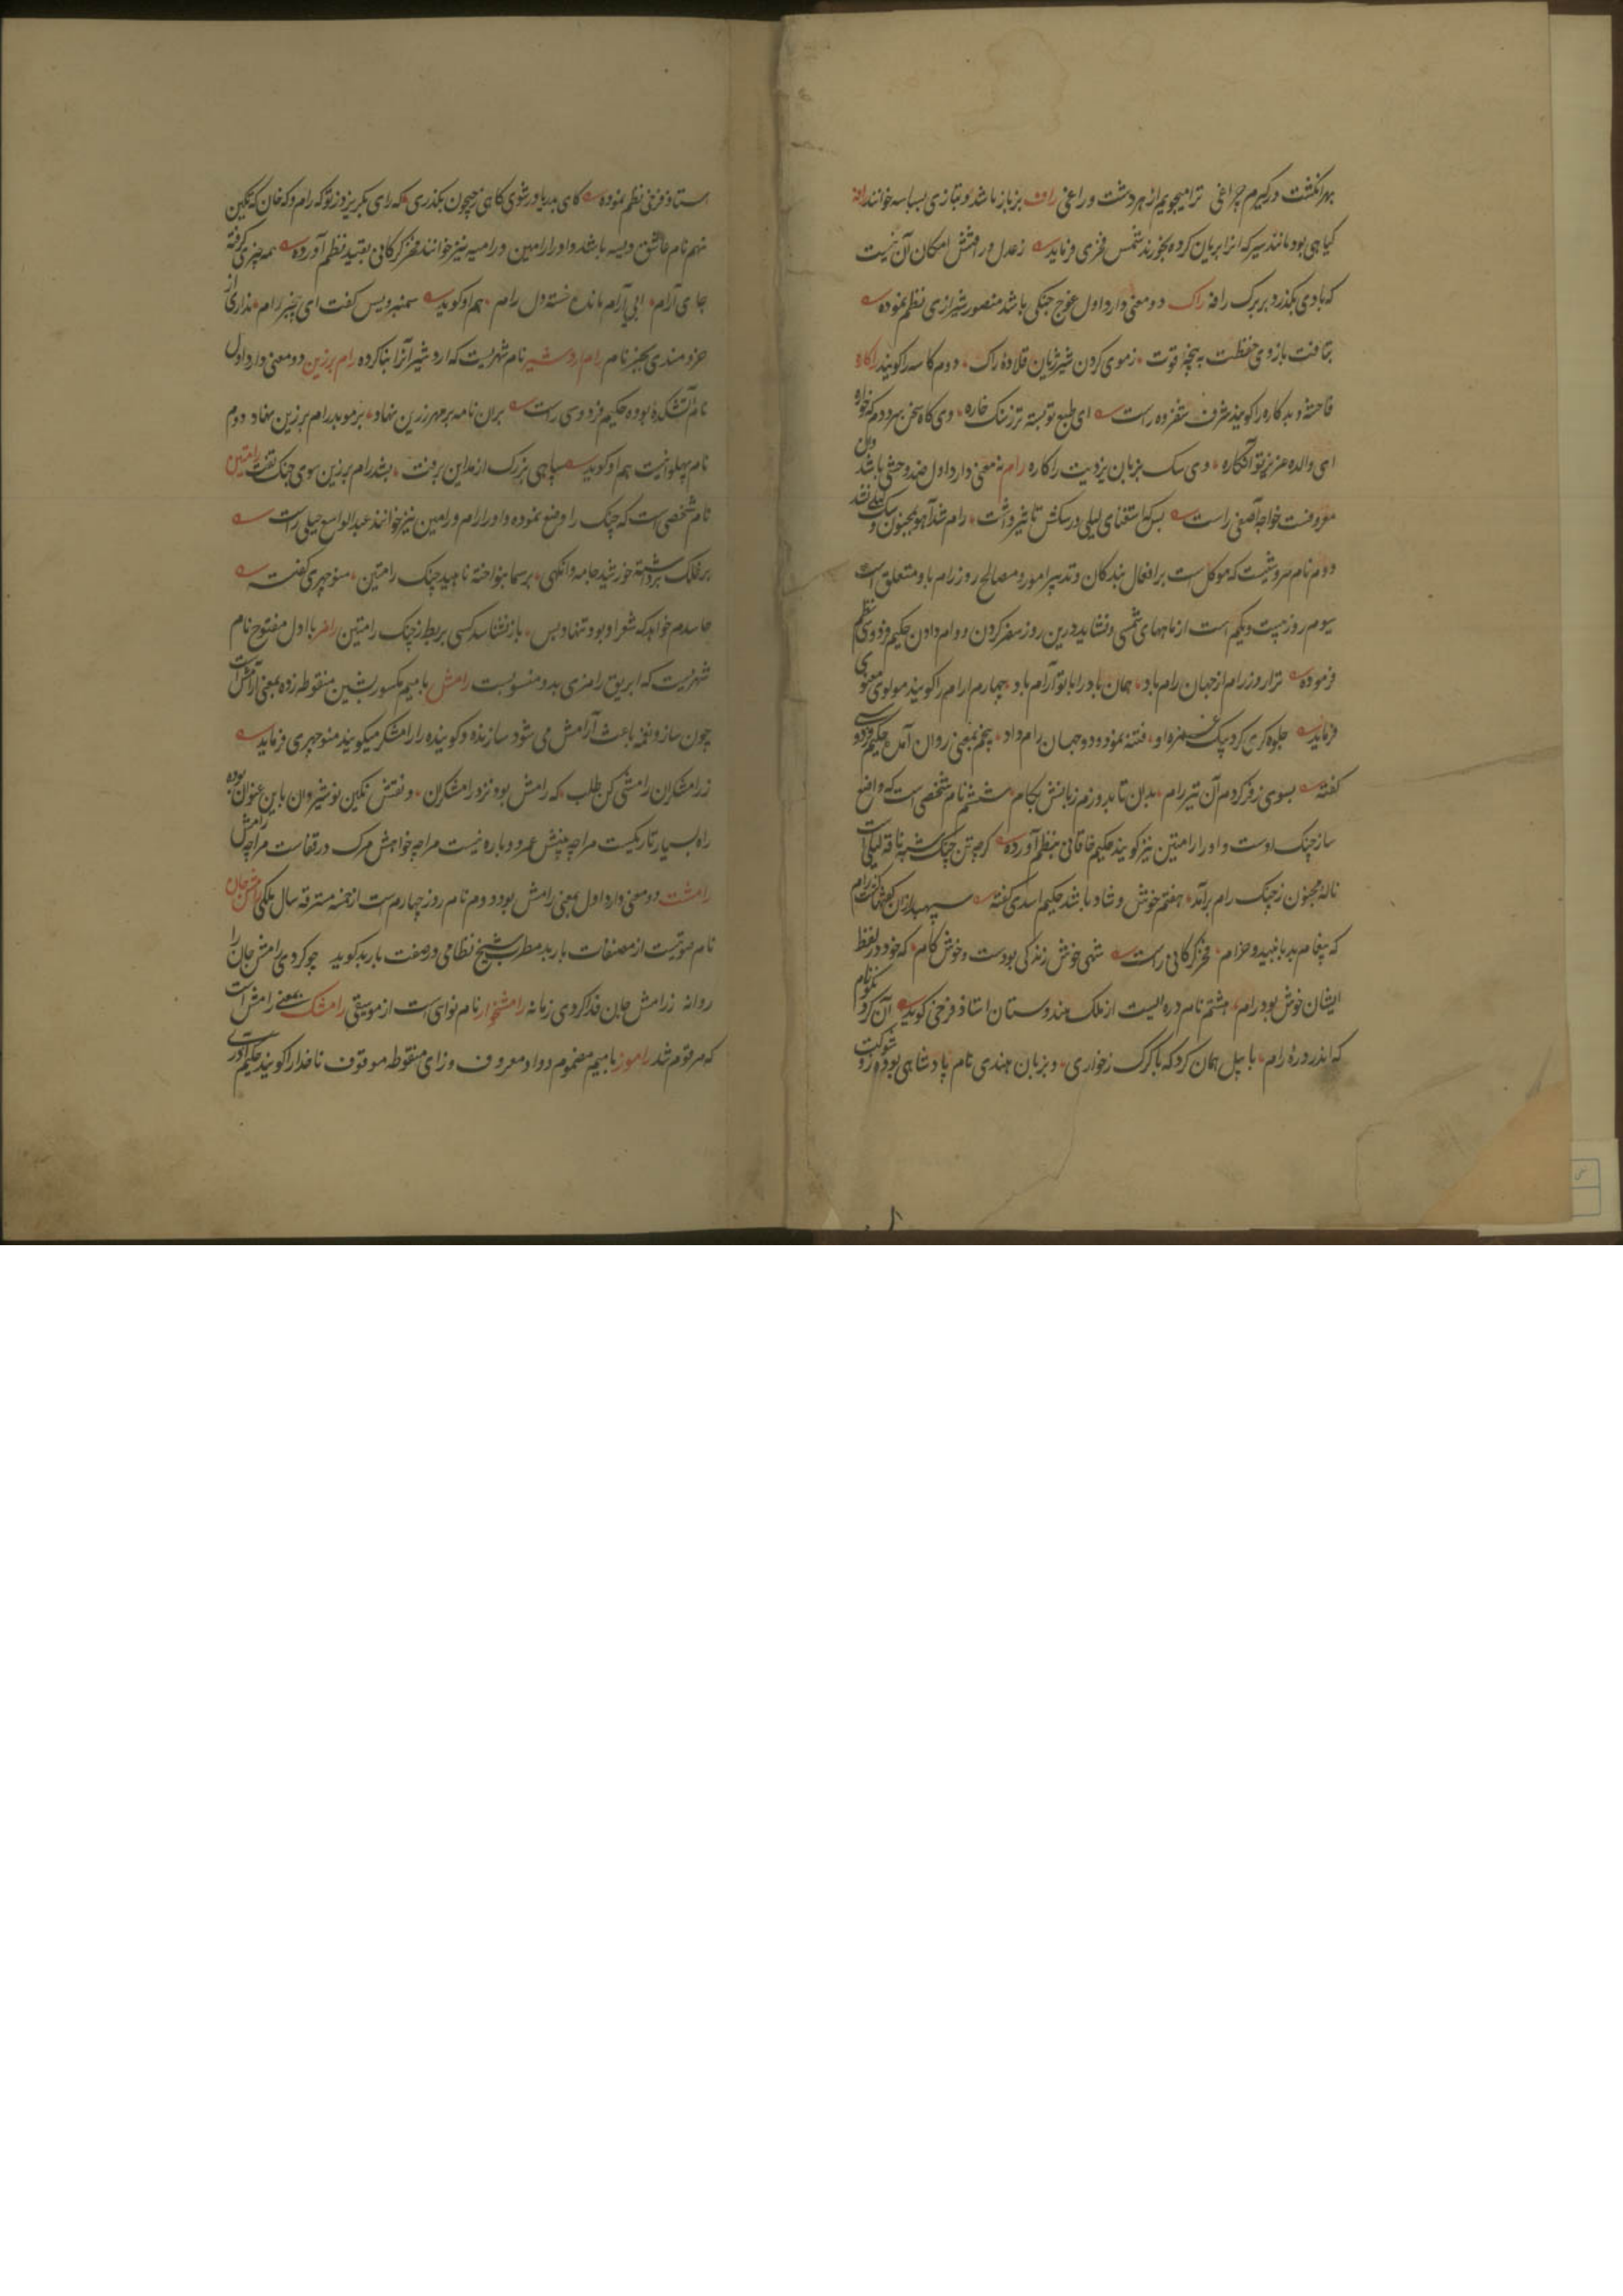 بهر انگشت درگیرم چراغی ترا میجویم از هر دشت و راغی راف بزباز باشد و بتازی بسباسه خوانند رافه
گیاهی بود مانند سیر که انرا بریان کرده بخورند شمس فخری فرماید ز عدل و رافتش امکان آن نیست
که بادی بگذرد بر برک رافه راک دو معنی دارد اول غوج جنگی باشد منصور شیرازی نظم نموده
بتافت بازوی حفظت به پنجه قوت ز موی گردن شیر ژیان قلاده راک دوم کاسه را گویند راکاره
فاحشه و بدکاره را گویند شرف سفرده راست ای طبع تو بسته تر ز سنگ خاره وی گاه سخن
ای والده عزیز تو وی سک بزبان یزدیت راکاره رام نه معنی دارد اول ضد وحشی باشد
معروفست خواجه آصفی راست بسکه استغنای لیلی در سکش تاثیر داشت رام شد آهو بمجنون و سک لیلی نشد
دوم نام سروشیست که موکل است بر افعال بندگان و تدبیر امور و مصالح روز رام باو متعلق است
سیوم روز بیست و یکم است از ماههای شمسی و نشاید درین روز سفر کردن و وام دادن حکیم فردوسی نظم
فرموده ترا روز رام از جهان رام باد همان باد را با تو آرام باد چهارم ارام را گویند مولوی معنوی
فرماید جلوه گری کرد پیک غمزه او فتنه نمود و دو جهان رام داد پنجم بمعنی روان آمده حکیم فردوسی
گفته بسوی زفر کردم آن تیر رام بدان تا بدوزم زبانش بکام ششم نام شخصی است که واضع
ساز چنگ اوست و او را رامتین نیز گویند حکیم خاقانی بنظم آورده گرچه تن چنگ شبه ناقه لیلی است
ناله مجنون ز چنگ رام برآمد هفتم خوش و شاد باشد حکیم اسدی گفته سپهبد
که پیغام بد با نبید و خرام فخر گرگانی راست شهی خوش زندگی بودست و خوش کام که خود در لفظ
ایشان خوش بود رام هشتم نام دره ایست از ملک هندوستان استاد فرخی گوید آن کرد
که اندر دره رام با پیل همان کرد که با کرک ز خواری و بزبان هندی نام پادشاهی بوده ذو شوکت
ستاد فرخی نظم نموده گاهی بدریا در شوی گاهی بجیحون بگذری که رای بگریزد ز تو که رام و که خان که تکین
نهم نام عاشق ویسه باشد و او را رامین و رامینه نیز خوانند فخر گرگانی بقید نظم آورده همه چیزی گرفته
جای آرام ابی آرام مانده خسته دل رام هم او گوید سمنبر ویس گفت ای بخبر رام نداری از
خردمندی بجز نام رام اردشیر نام شهریست که اردشیر آنرا بنا کرده رام برزین دو معنی دارد اول
نام آتشکده بوده حکیم فردوسی راست بران نامه بر مهر زرین نهاد بر موبد رام برزین نهاد دوم
نام پهلوانیست هم او گوید سپاهی بزرگ از مداین برفت بشد رام برزین سوی جنگ تفت رامتین
نام شخصی است که چنگ را وضع نموده و او را رام و رامین نیز خوانند عبدالواسع جبلی راست
بر فلک برداشته خورشید جام و انگهی بر سما بنواخته ناهید چنگ رامتین منوچهری گفته
حاسدم خواهد که شعر او بود تنها و بس باز نشناسد کسی بربط ز چنگ رامتین رامز با اول مفتوح نام
شهریست که ابریق رامزی بدو منسوبست رامش با میم مکسور بشین منقوطه زده بمعنی آرامش است
چون ساز و نغمه باعث آرامش می شود سازنده و گوینده را رامشگر میگویند منوچهری فرماید
ز رامشگران رامشی کن طلب که رامش بود نزد رامشگران و نقش نگین نوشیروان باین عنوان بوده
راه بسیار تاریکست مرا چه بینش عمر دوباره نیست مرا چه خواهش مرگ در قفاست مرا چه رامش
رامشت دو معنی دارد اول بمعنی رامش بود دوم نام روز چهارم است از خمسه مسترقه سال ملکی رامش جان
نام صوتیست از مصنفات باربد مطرب شیخ نظامی در صفت باربد گوید چو کردی رامش جان را
روانه ز رامش جان فدا کردی زمانه رامشخوار نام نوای است از موسیقی رامشک بمعنی رامش است
که مرقوم شد راموز با میم مضموم و واو معروف و زای منقوطه موقوف ناخدا را گویند حکیم آذری